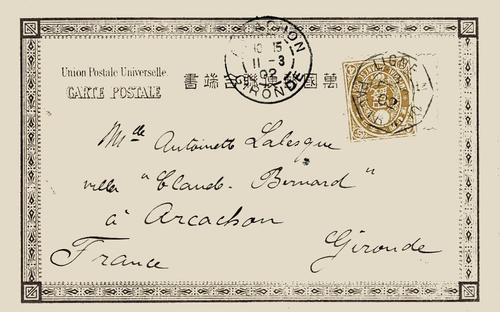 ARCACHON
10 15
11 - 3
02
GIRONDE
Union Postale Universelle.
CARTE POSTALE
書端合聯便郵國萬
LIGNE
02
Mlle Antoinette Lalesque
villa "Claude-Bernard"
à Arcachon
France Gironde